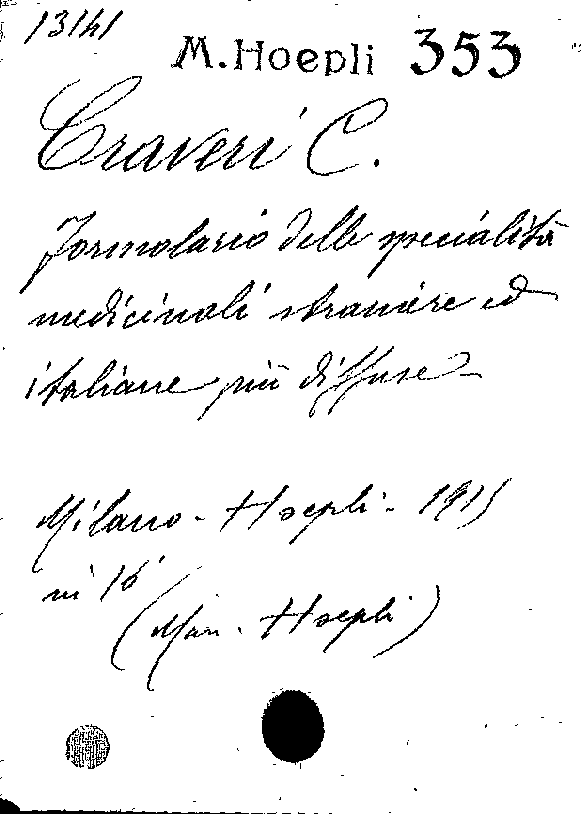 13141
M. Hoepli 353
Craveri C.
Formolario delle specialità
medicinali straniere ed
italiane più diffuse
Milano - Hoepli - 1915
in 16°
(Man. Hoepli)